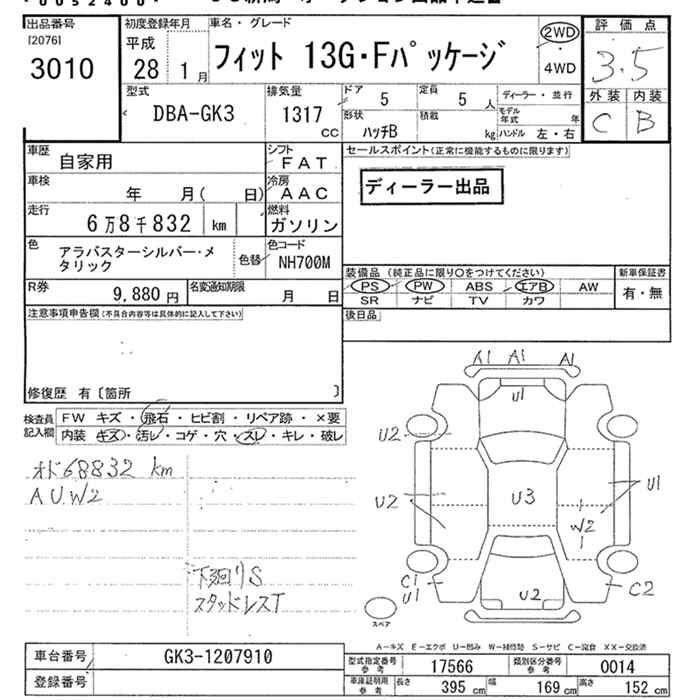 出品番号
[2076]
3010
初度登録年月
平成
28 1 月
車名・グレード
フィット 13G・Fパッケージ
2WD
・
4WD
評価点
3.5
外装 内装
C B
型式
DBA-GK3
排気量
1317
CC
ドア
5
定員
5 人
形状
ハッチB
積載
kg
ディーラー・並行
モデル年式 年
ハンドル 左・右
車歴
自家用
シフト
FAT
車検
年 月( 日)
冷房
AAC
走行
6万8千832 km
燃料
ガソリン
色
アラバスターシルバー・メタリック
色替
色コード
NH700M
R券
9,880 円
名変通知期限
月 日
セールスポイント(正常に機能するものに限ります)
ディーラー出品
装備品 (純正品に限り○をつけてください)
PS PW ABS エアB AW
SR ナビ TV カワ
新車保証書
有・無
後日品
注意事項申告欄(不具合内容等は具体的に記入して下さい)
修復歴 有〔箇所 〕
検査員記入欄
FW キズ・飛石・ヒビ割・リペア跡・×要
内装 キズ・汚レ・コゲ・穴・スレ・キレ・破レ
オド68832 km
A U.W2
下廻りS
スタッドレスT
A1 A1 A1
U1
U2
U2
U3
U1
W2
C1
U1
U2
C2
スペア
A-キズ E-エクボ U-凹み W-補修跡 S-サビ C-腐食 XX-交換済
車台番号
GK3-1207910
登録番号
型式指定番号 参考
17566
類別区分番号 参考
0014
車庫証明用 参考
長さ 395 cm
幅 169 cm
高さ 152 cm